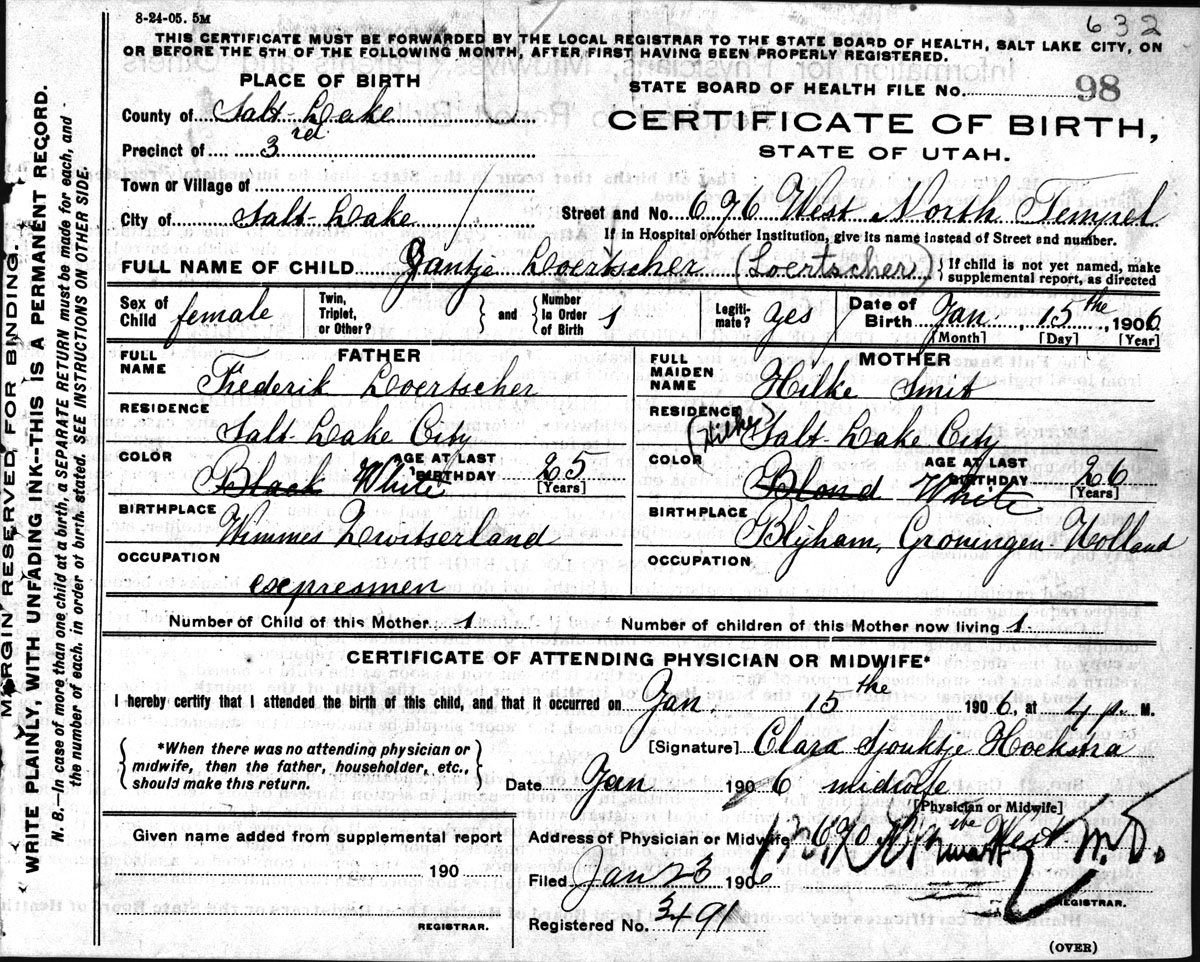 8-24-05. 5M
632
THIS CERTIFICATE MUST BE FORWARDED BY THE LOCAL REGISTRAR TO THE STATE BOARD OF HEALTH, SALT LAKE CITY, ON
OR BEFORE THE 5TH OF THE FOLLOWING MONTH, AFTER FIRST HAVING BEEN PROPERLY REGISTERED.
PLACE OF BIRTH
STATE BOARD OF HEALTH FILE No. 98
County of Salt-Lake
CERTIFICATE OF BIRTH,
Precinct of 3rd
STATE OF UTAH.
Town or Village of
City of Salt-Lake
Street and No. 676 West North Tempel
If in Hospital or other Institution, give its name instead of Street and number.
FULL NAME OF CHILD Jantje Loertscher (Loertscher) { If child is not yet named, make
supplemental report, as directed
Sex of Child female
Twin, Triplet, or Other? } and { Number In Order of Birth 1
Legitimate? yes
Date of Birth Jan, 15the, 1906
[Month] [Day] [Year]
FATHER
FULL NAME Frederik Loertscher
RESIDENCE
Salt-Lake City
COLOR Black White AGE AT LAST BIRTHDAY 25
[Years]
BIRTHPLACE
Wimmes Zwitserland
OCCUPATION
expresmen
MOTHER
FULL MAIDEN NAME Hilke Smit
RESIDENCE (Hilke)
Salt-Lake City
COLOR Blond White AGE AT LAST BIRTHDAY 26
[Years]
BIRTHPLACE
Blijham, Groningen Holland
OCCUPATION
Number of Child of this Mother 1 Number of children of this Mother now living 1.
CERTIFICATE OF ATTENDING PHYSICIAN OR MIDWIFE*
I hereby certify that I attended the birth of this child, and that it occurred on Jan. 15the 1906, at 4 p. M.
{ *When there was no attending physician or
midwife, then the father, householder, etc.,
should make this return. }
[Signature] Clara Sjouktje Hoeksma
Date Jan 1906 midwife
[Physician or Midwife]
Given name added from supplemental report
190
REGISTRAR.
Address of Physician or Midwife 670 West
Filed Jan 23 1906 M.D.
REGISTRAR.
Registered No. 3491
(OVER)
MARGIN RESERVED FOR BINDING.
WRITE PLAINLY, WITH UNFADING INK--THIS IS A PERMANENT RECORD.
N. B.—In case of more than one child at a birth, a SEPARATE RETURN must be made for each, and
the number of each, in order of birth, stated. SEE INSTRUCTIONS ON OTHER SIDE.